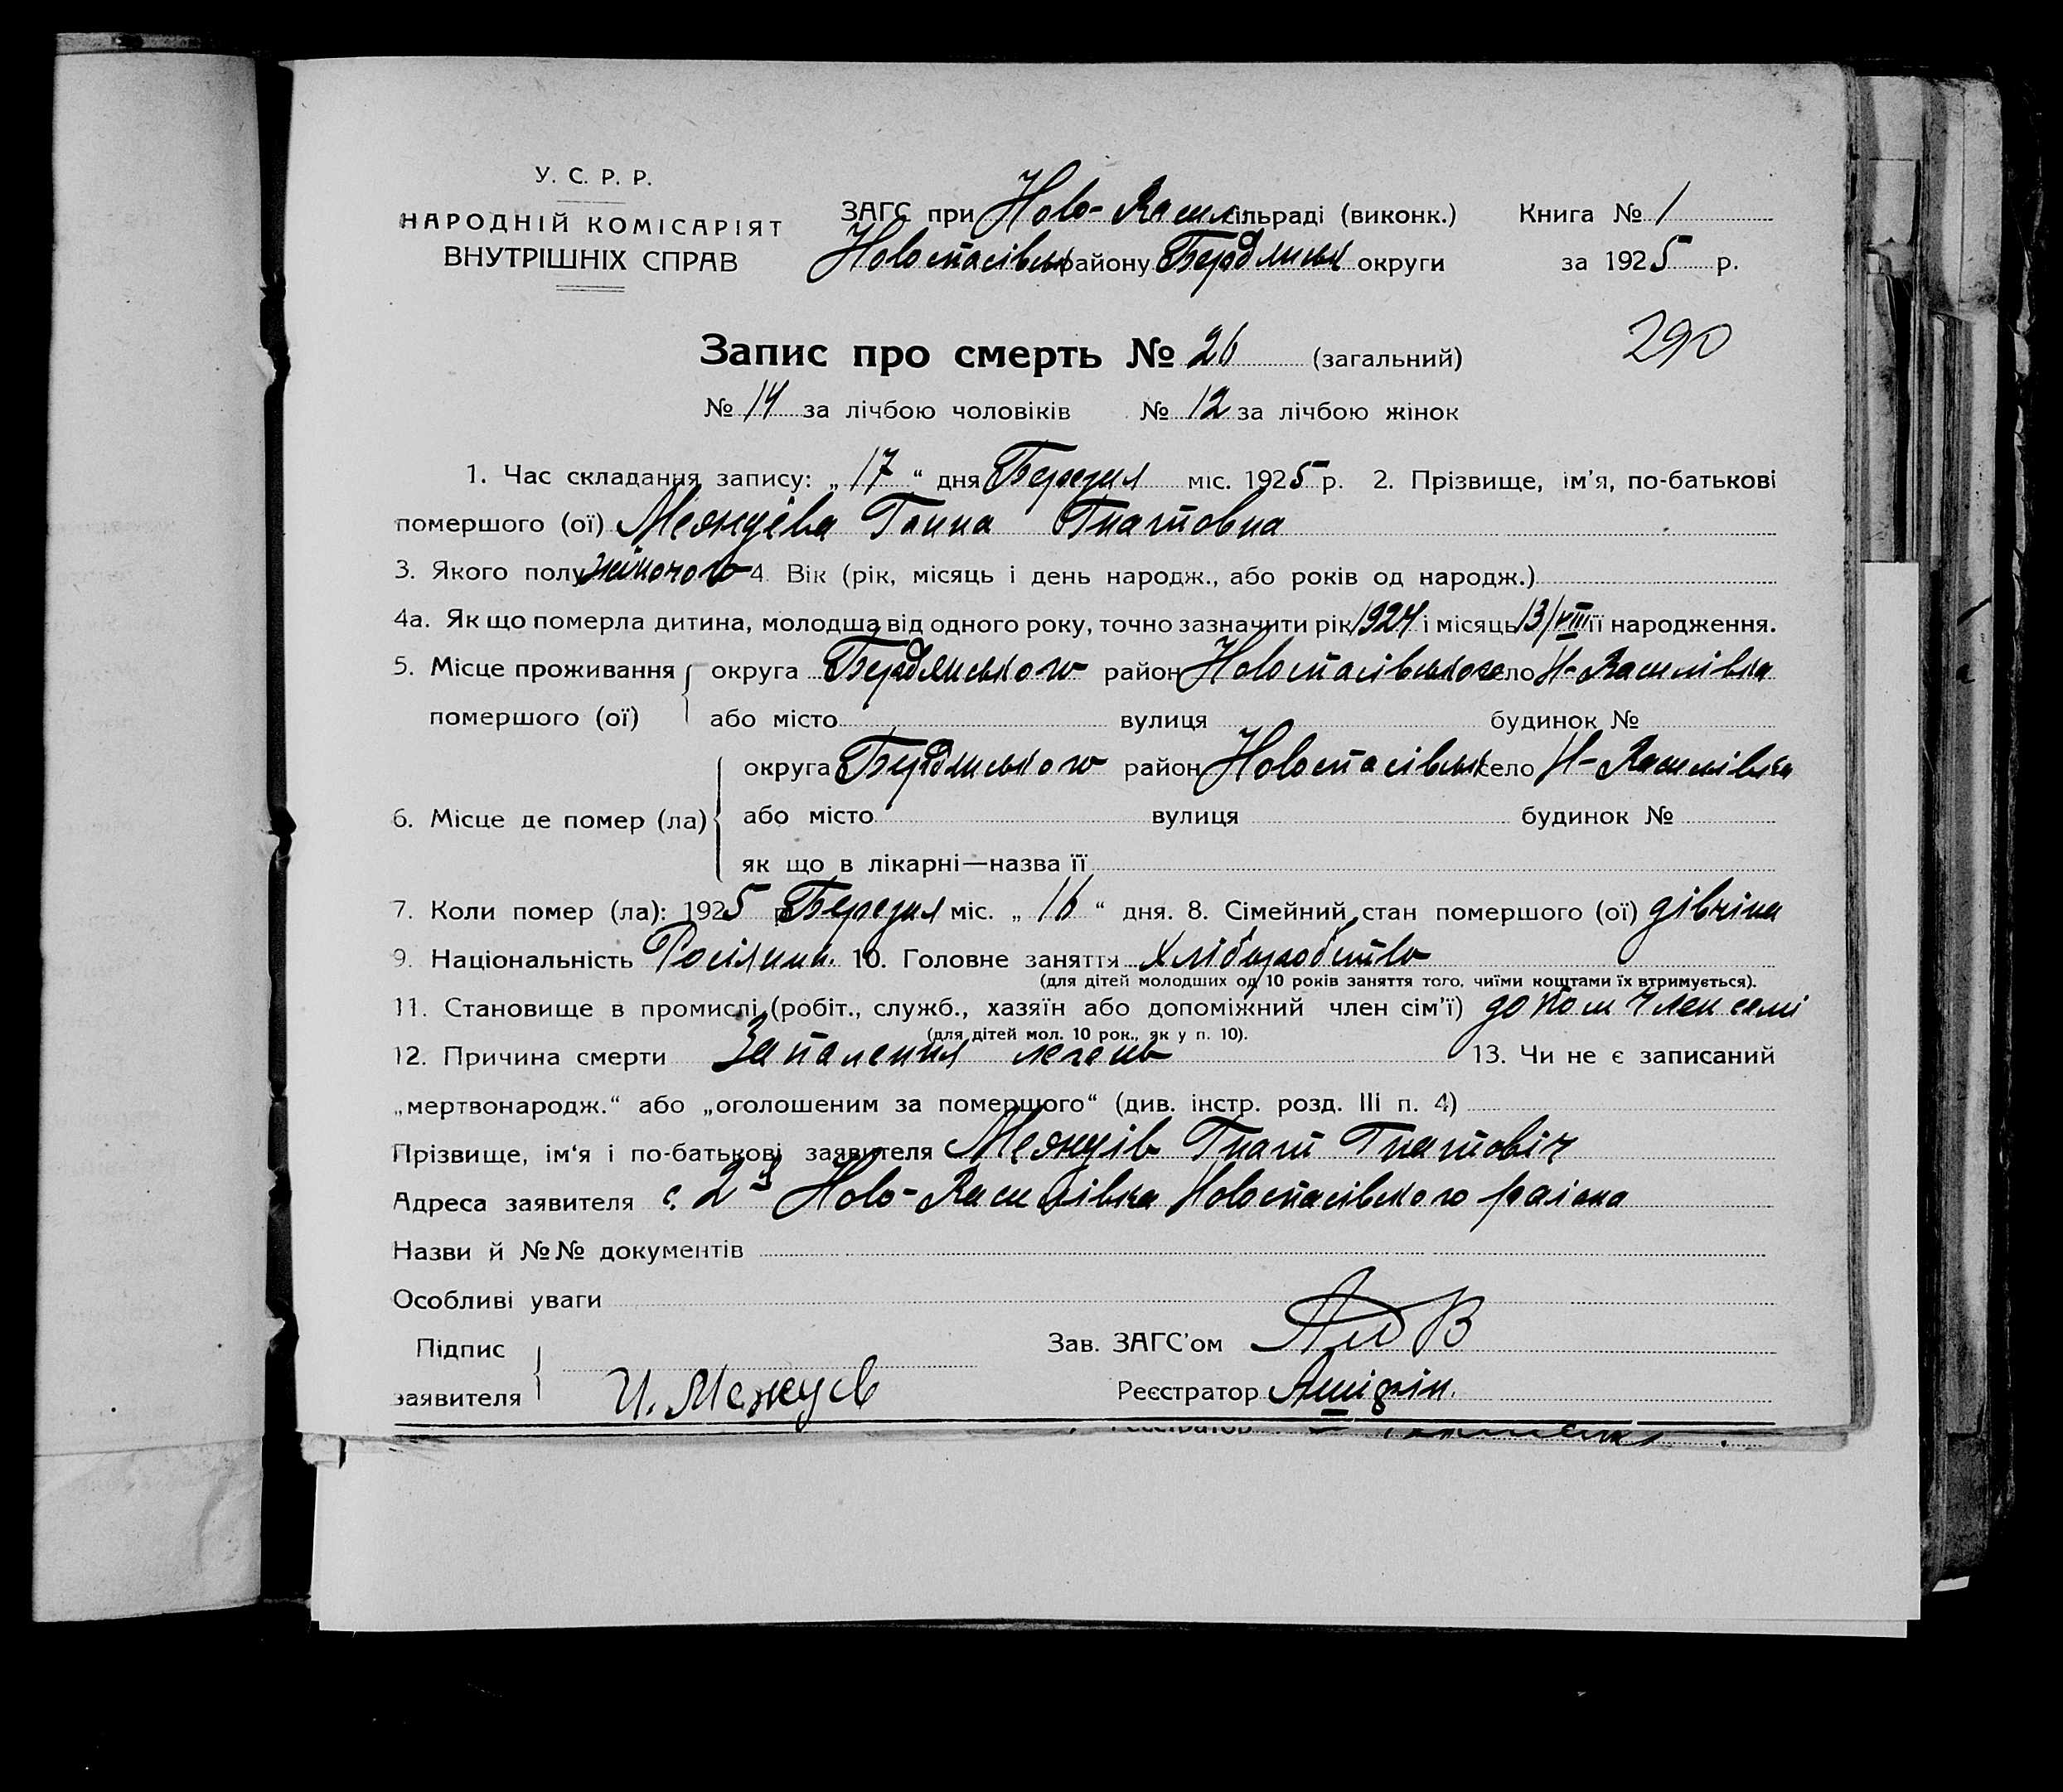 У. С. Р. Р.
НАРОДНІЙ КОМІСАРІЯТ
ВНУТРІШНІХ СПРАВ
ЗАГС при Ново-Васил сільраді (виконк.) Книга № 1
Новоспасівськ району Бердянськ округи за 1925 р.
290
Запис про смерть № 26 (загальний)
№ 14 за лічбою чоловіків № 12 за лічбою жінок
1. Час складання запису: „ 17 “ дня Березня міс. 1925 р. 2. Прізвище, ім’я, по-батькові
помершого (ої) Межуєва Ганна Гнатовна
3. Якого полу жіночого 4. Вік (рік, місяць і день народж., або років од народж.)
4а. Як що померла дитина, молодша від одного року, точно зазначити рік 1924 і місяць 13/VIII її народження.
5. Місце проживання округа Бердянського район Новоспасівського село Н-Василівка
помершого (ої) або місто вулиця будинок №
округа Бердянського район Новоспасівськ село Н-Василівка
6. Місце де помер (ла) або місто вулиця будинок №
як що в лікарні—назва її
7. Коли помер (ла): 1925 р. Березня міс. „ 16 “ дня. 8. Сімейний стан помершого (ої) дівчина
9. Національність Росіянин. 10. Головне заняття хліборобство
(для дітей молодших од 10 років заняття того, чиїми коштами їх втримується).
11. Становище в промислі (робіт., служб., хазяїн або допоміжний член сім’ї) допом член семі
(для дітей мол. 10 рок., як у п. 10).
12. Причина смерти Запалення легень 13. Чи не є записаний
„мертвонародж.“ або „оголошеним за помершого“ (див. інстр. розд. III п. 4)
Прізвище, ім’я і по-батькові заявителя Межуїв Гнат Гнатовіч
Адреса заявителя с. 2 Ново-Василівка Новоспасівского раіона
Назви й №№ документів
Особливі уваги
Підпис
заявителя И. Межуев
Зав. ЗАГС’ом
Реєстратор
Реєстратор